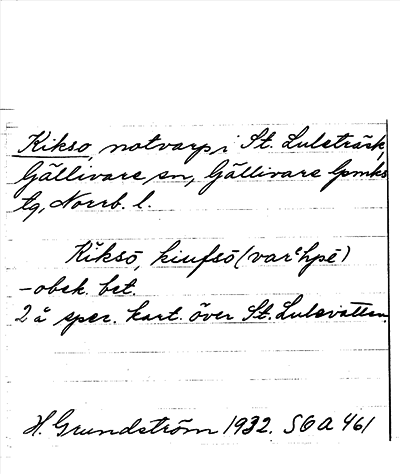 Kikso, notvarp i St. Luleträsk,
Gällivare sn, Gällivare lpmks
tg, Norrb. l.
Kik̆sō, kiufsō (varᵉhpē)
– obek. bet.
2 å spec. kart. över St. Lulevatten.
H. Grundström 1932. SOA 461